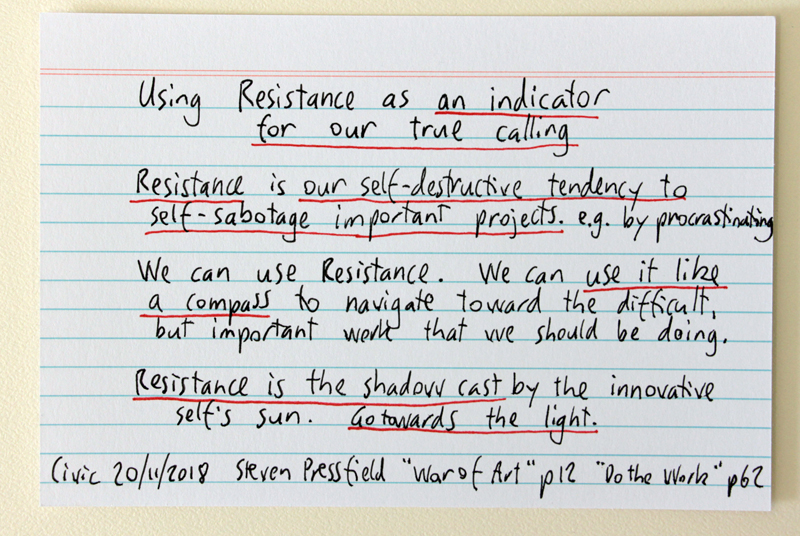 Using Resistance as an indicator
for our true calling
Resistance is our self-destructive tendency to
self-sabotage important projects. e.g. by procrastinating
We can use Resistance. We can use it like
a compass to navigate toward the difficult,
but important work that we should be doing.
Resistance is the shadow cast by the innovative
self's sun. Go towards the light.
Civic 20/11/2018 Steven Pressfield "War of Art" p12 "Do the Work" p62